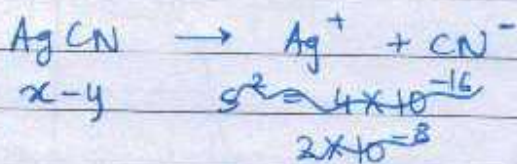 AgCN → Ag⁺ + CN⁻
x-y s² = 4×10⁻¹⁶
2×10⁻⁸